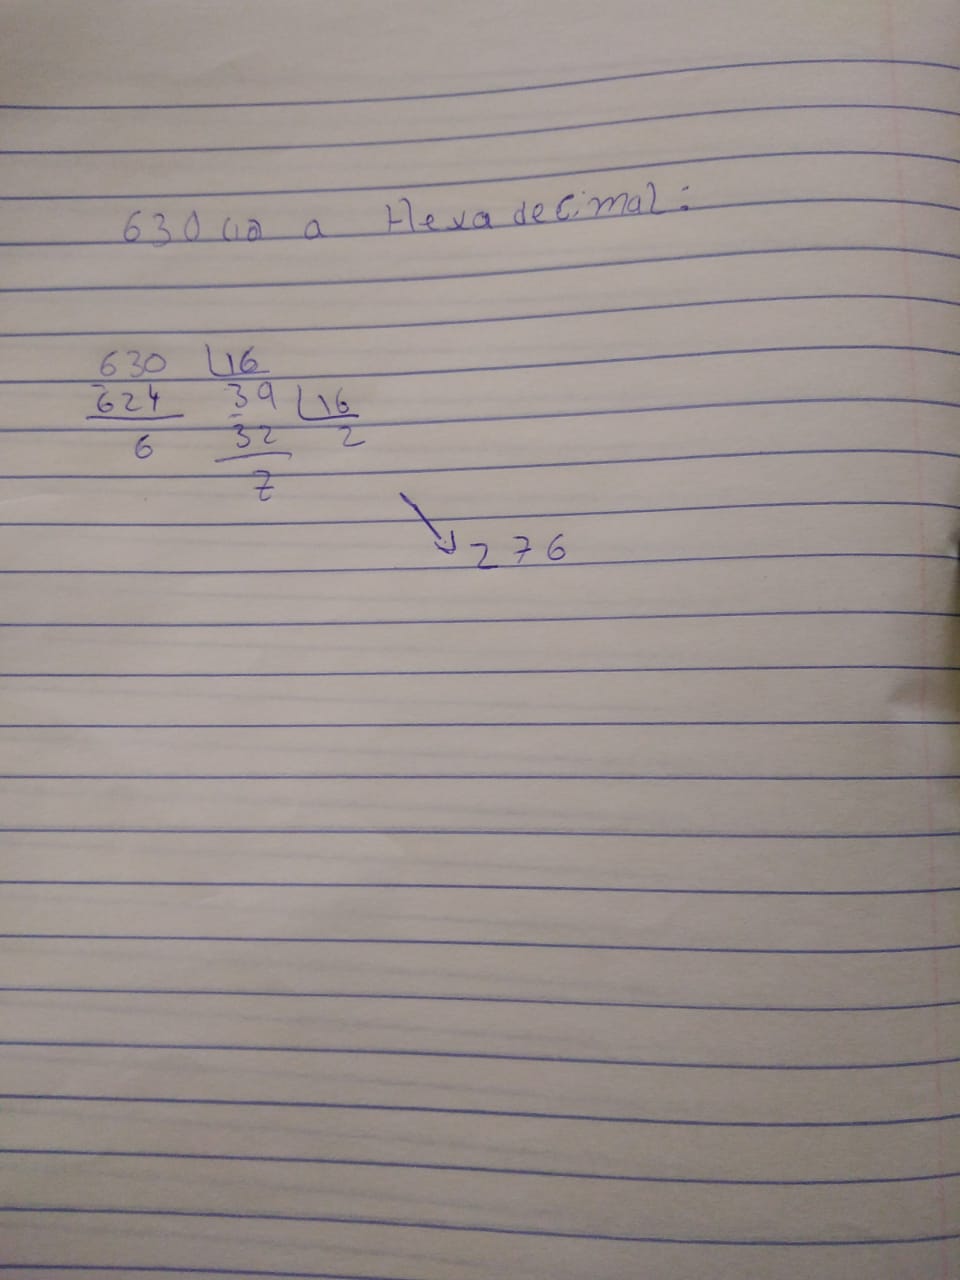 630(10 a Hexadecimal:
630 16
624 39 16
6 32 2
7
276